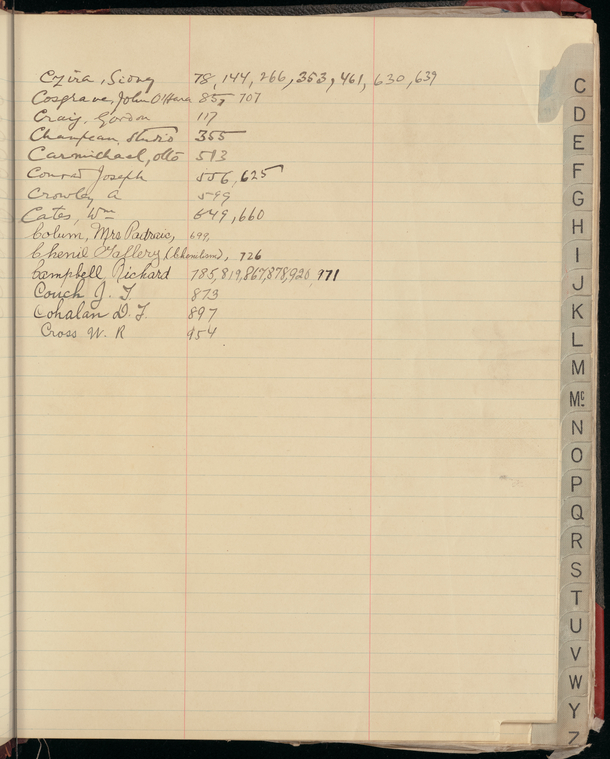 Czira, Sidney 78, 144, 266, 353, 461, 630, 639
Cosgrave, John O'Hara 857, 707
Craig, Gordon 117
Champeau, Studio 355
Carmichael, Otto 513
Conrad Joseph 556, 625
Crowley A 599
Cates, Wm 649, 660
Colum, Mrs Padraic, 699,
Chenil Gallery (Chenil's), 726
Campbell Richard 785, 819, 867, 878, 920, 971
Couch J. F. 873
Cohalan D. F. 897
Cross W. R 954
C
D
E
F
G
H
I
J
K
L
M
Mc
N
O
P
Q
R
S
T
U
V
W
Y
Z